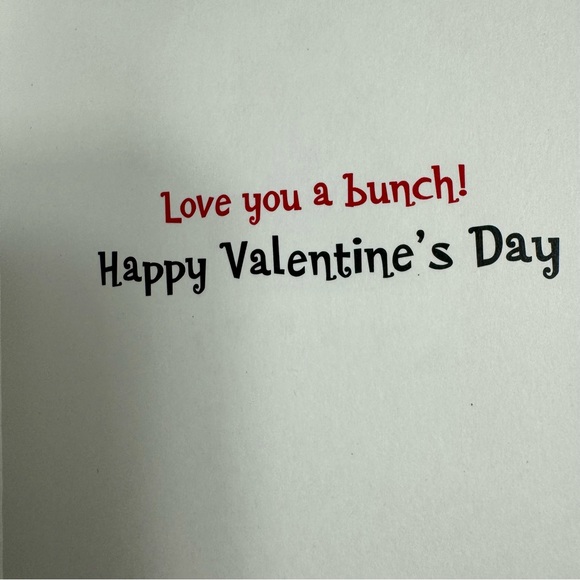 Love you a bunch!
Happy Valentine's Day